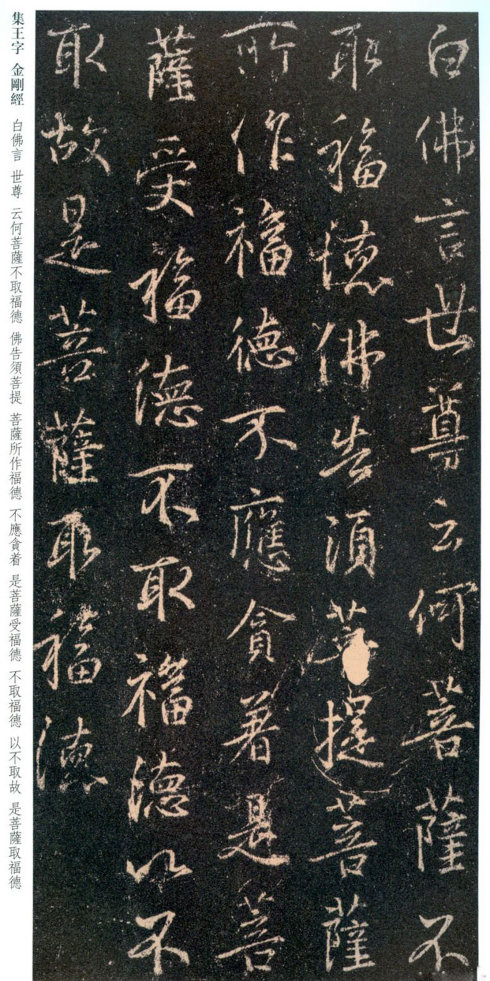 白佛言世尊云何菩薩不
取福德佛告須菩提菩薩
所作福德不應貪著是菩
薩受福德不取福德以不
取故是菩薩取福德
集王字 金剛經 白佛言 世尊 云何菩薩不取福德 佛告須菩提 菩薩所作福德 不應貪着 是菩薩受福德 不取福德 以不取故 是菩薩取福德